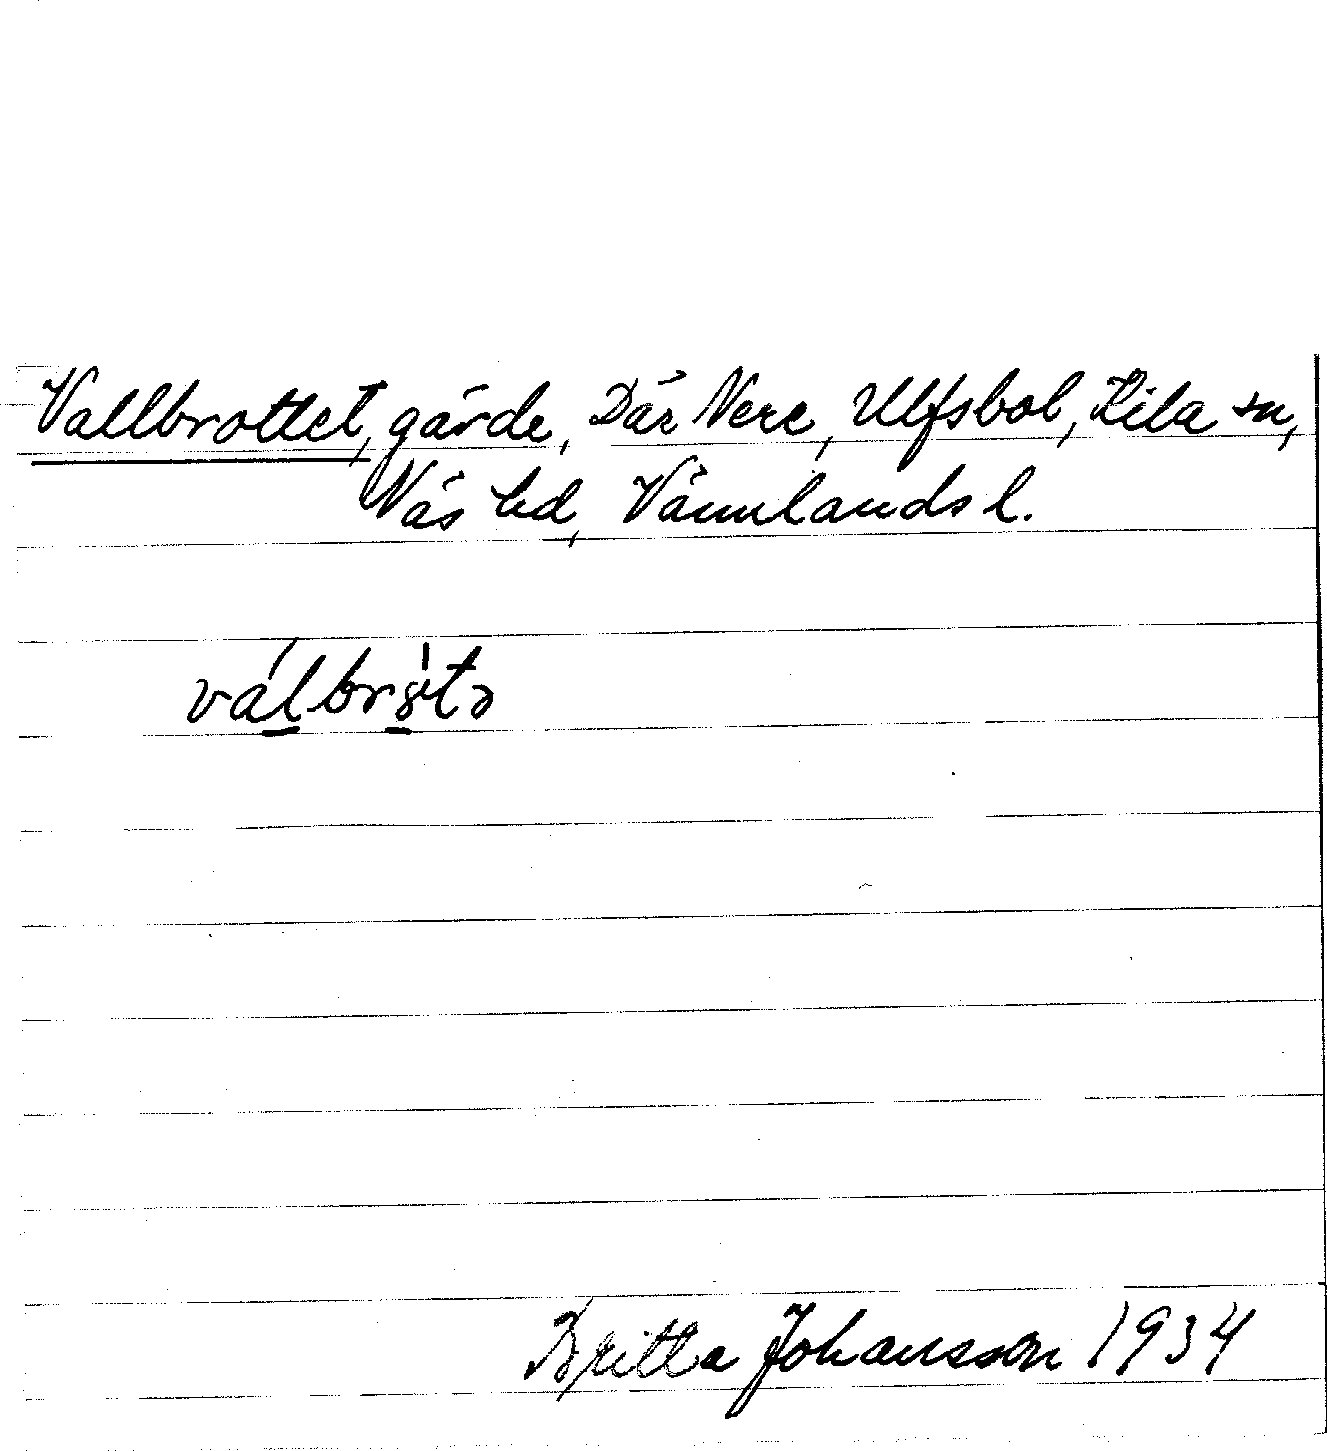 Vallbrottet, gärde, Där Nere, Ulfsbol, Kila sn,
Näs hd, Värmlands l.
Britta Johansson 1934